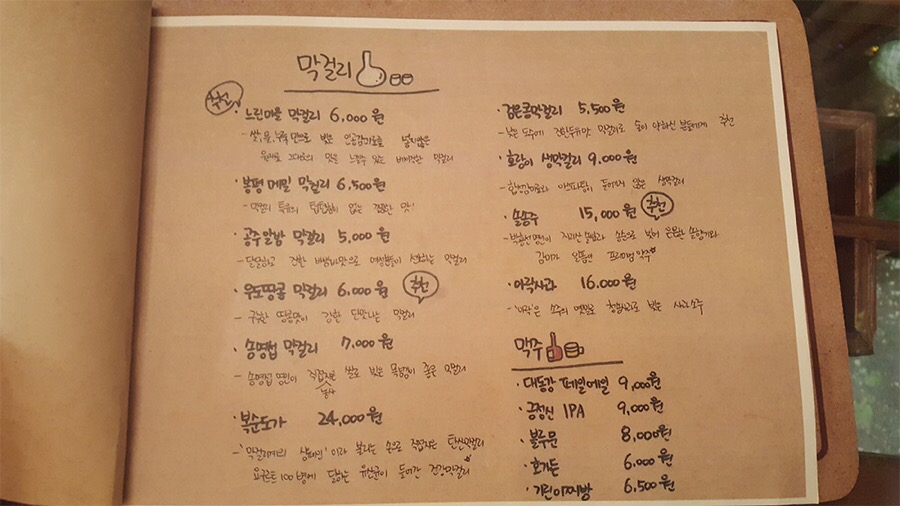 막걸리
추천
· 느린마을 막걸리 6,000원
- 쌀, 물, 누룩 만으로 빚은 인공감미료를 넣지않은
원재료 그대로의 맛을 느낄수 있는 막걸리
· 봉평메밀 막걸리 6,500원
- 막걸리 특유의 텁텁함이 없는 깔끔한 맛!
· 공주알밤 막걸리 5,000원
- 달달하고 진한 막걸리
· 우도땅콩 막걸리 6,000원 추천
- 구수한 땅콩맛이 강한 단맛나는 막걸리
· 송명섭 막걸리 7,000원
- 송명섭 명인이 직접지은 쌀로 빚은 목넘김이 좋은 막걸리
농사
· 복순도가 24,000원
- '막걸리계의 샴페인' 이라 불리는 손으로 직접빚은 탄산막걸리
요구르트 100병에 달하는 유산균이 들어간 건강막걸리
· 검은콩막걸리 5,500원
- 낮은 도수에 진한두유맛 막걸리로 술이 약하신 분들에게 추천
· 호랑이 생막걸리 9,000원
- 합성감미료와 아스파탐이 들어가지 않은 생막걸리
· 솔송주 15,000원 추천
- 박흥선명인이 솔잎과 송순으로 빚어 은은한 솔향기와
감미가 일품인 프리미엄 약주
· 아락사과 16,000원
- '아락'은 소주의 옛말로 청송사과로 빚은 사과소주
맥주
· 대동강 페일에일 9,000원
· 긍정신 IPA 9,000원
· 블루문 8,000원
· 호가든 6,000원
· 기린이찌방 6,500원